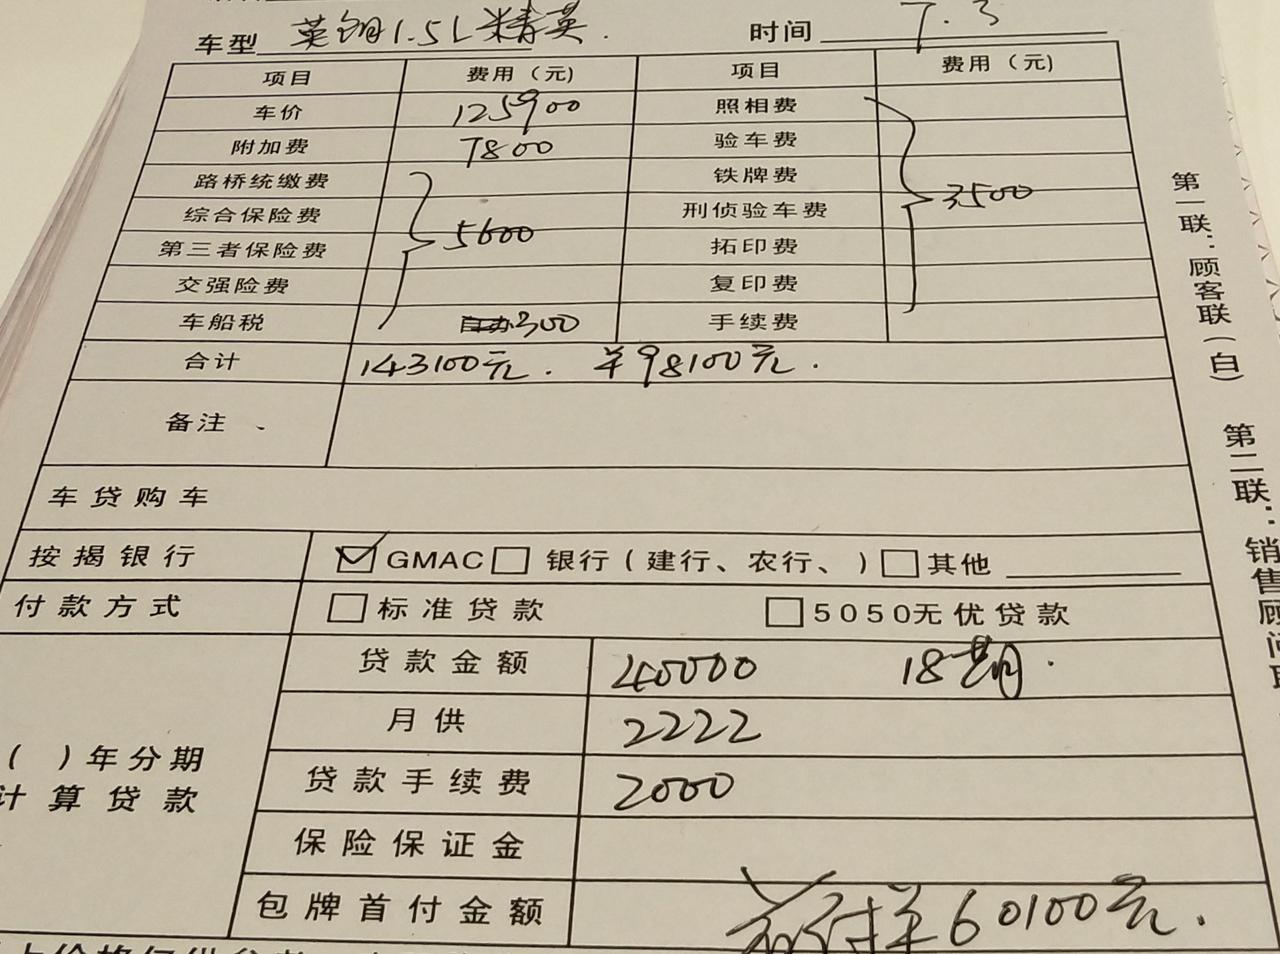 车型 英朗1.5L精英. 时间 7.3
项目 费用（元） 项目 费用（元）
车价 125900 照相费
附加费 7800 验车费
路桥统缴费 铁牌费
综合保险费 5600 刑侦验车费 3500
第三者保险费 拓印费
交强险费 复印费
车船税 300 手续费
合计 143100元. ¥98100元.
备注
车贷购车
按揭银行 GMAC 银行（建行、农行、） 其他
付款方式 标准贷款 5050无优贷款
贷款金额 40000 18期.
月供 2222
（ ）年分期
计算贷款
贷款手续费 2000
保险保证金
包牌首付金额 首付¥60100元.
第一联：顾客联（白） 第二联：销售顾问联